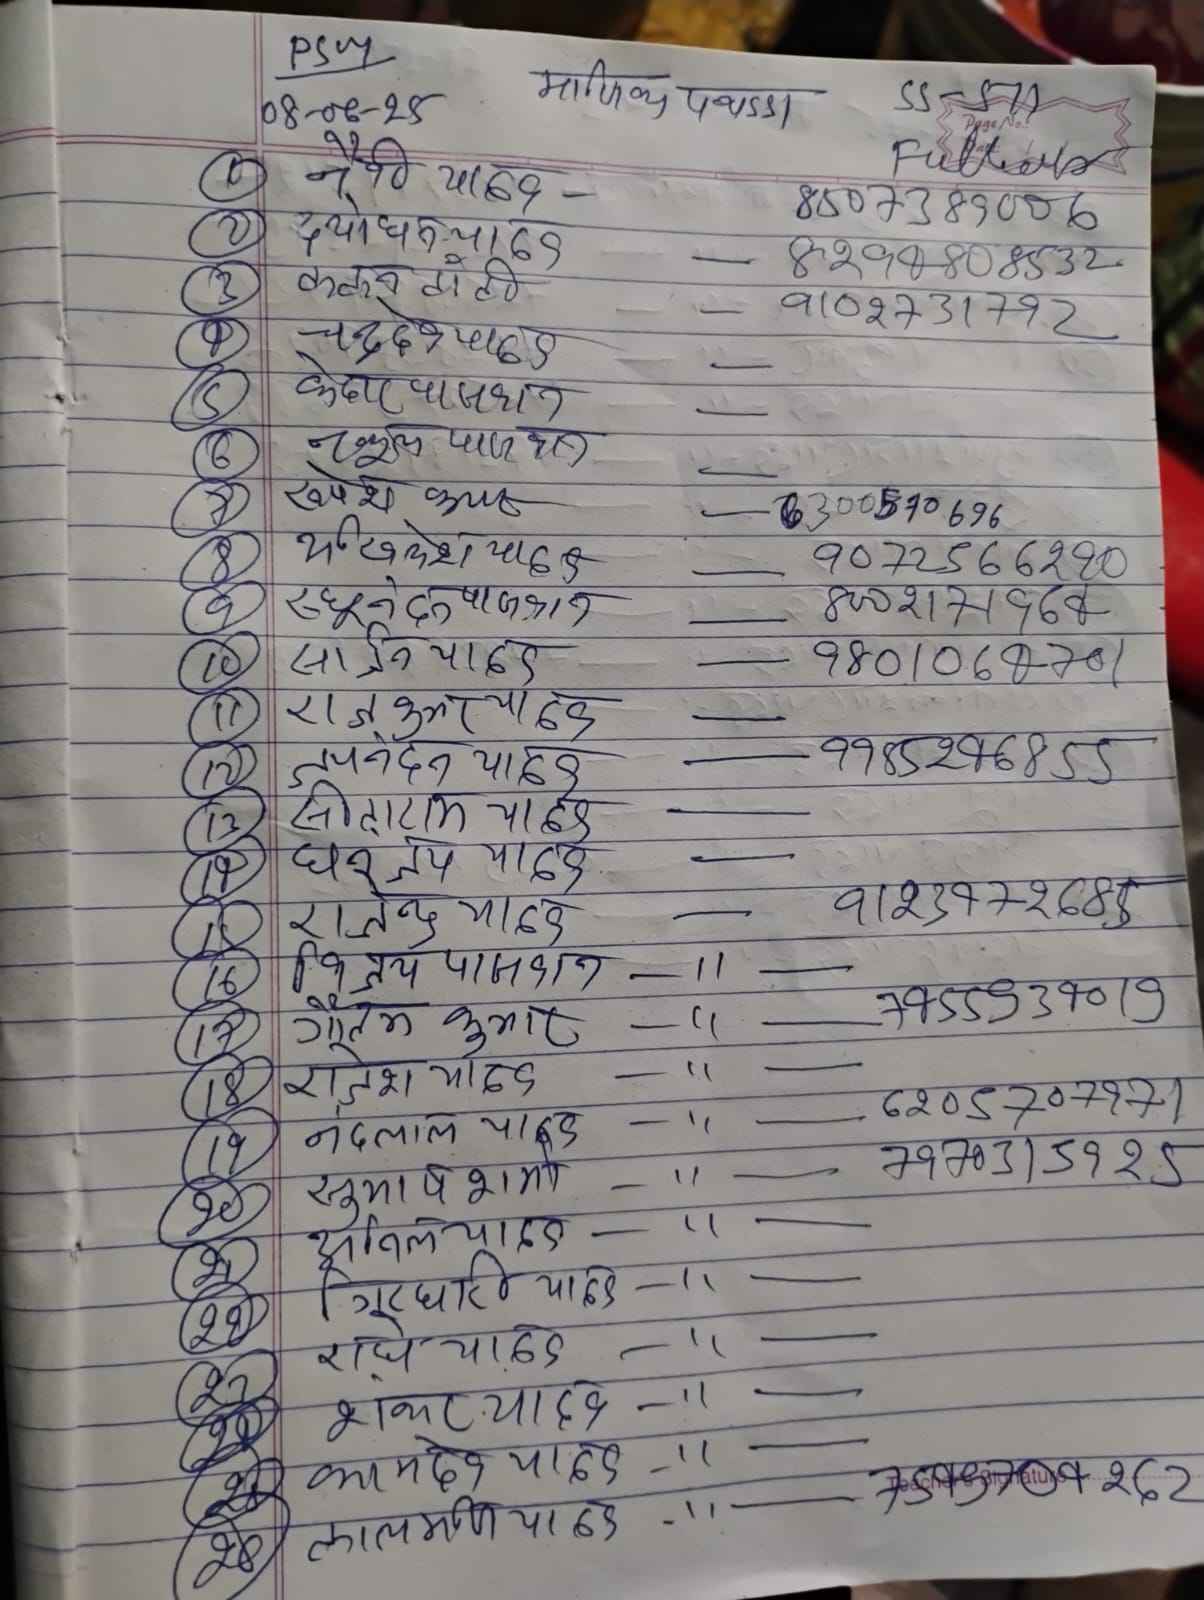 PSM
08-06-25
माणिक
SS-571
Page No.
① यादव - 8507389006
② दुर्योधन यादव -
③ - 9102731792
④ चन्द्रदेव यादव -
⑤ केदार पासवान -
⑥ नकुल पासवान -
⑦ रूपेश कुमार - 6300570696
⑧ अखिलेश यादव - 9072566290
⑨ रघुनंदन पासवान -
⑩ यादव - 9801064701
⑪ राजकुमार यादव -
⑫ जयनंदन यादव - 9985246855
⑬ सीताराम यादव -
⑭ यादव -
⑮ राजेन्द्र यादव - 9123772685
⑯ विजय पासवान - " -
⑰ गौतम कुमार - " - 7455939019
⑱ राजेश यादव - " -
⑲ नंदलाल यादव - " - 6205707971
⑳ सुभाष शर्मा - " - 7970315925
21 यादव - " -
22 गिरधारी यादव - " -
23 राधे यादव - " -
24 शंकर यादव - " -
25 कामदेव यादव - " -
लालमणि यादव - " -
Teacher's Signature